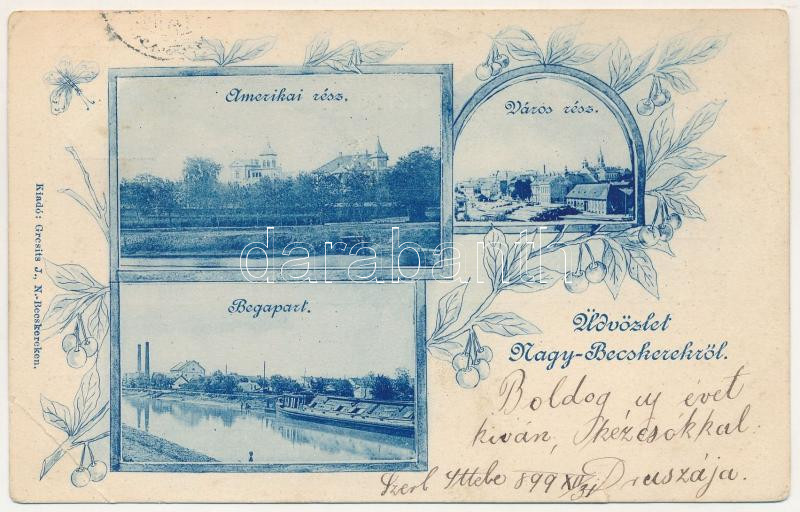 Amerikai rész.
Város rész.
Begapart.
Kiadó: Gresits J., N.-Becskereken.
darabanth
Üdvözlet
Nagy-Becskerekről.
Boldog uj évet
kiván, kézcsókkal:
Druszája.
Szerb Ittebe 899 XII/31